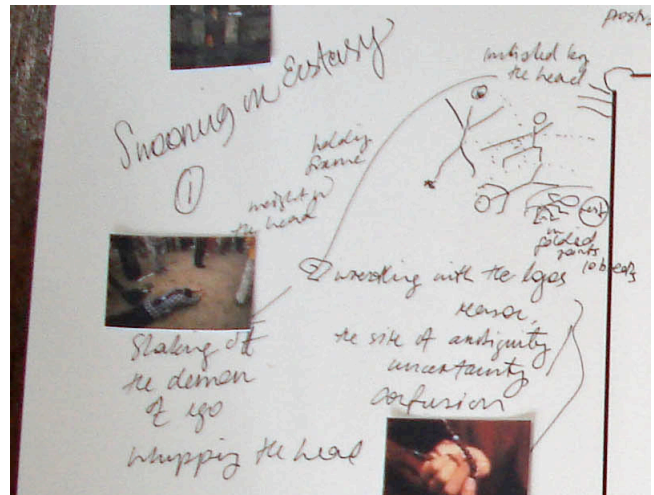 Swooning in Ecstasy
1
initiated by
the head
holding
frame
weight of
the head
in
folded
joints
wrestling with the logos
reason,
the site of ambiguity
uncertainty
confusion
Shaking off
the demon
of ego
whipping the head